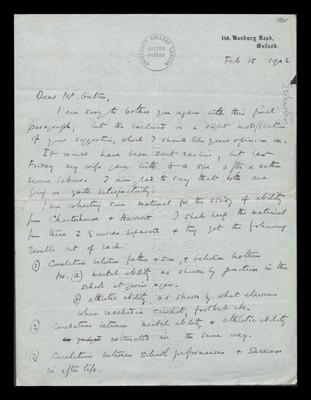 UNIVERSITY COLLEGE LONDON
GALTON PAPERS
118, Banbury Road,
Oxford.
Feb 15 1902
Dear Mr. Galton,
I am sorry to bother you again with this final
paragraph; but the enclosed is a slight modification
of your suggestion, which I should like your opinion on.
It would have been sent earlier, but last
Friday my wife gave birth to a son after a rather
severe labour. I am glad to say that both are
going on quite satisfactorily.
I am collecting some material for the study of ability
from Charterhouse & Harrow. I shall keep the material
from these 2 sources separate & try get the following
results out of each.
(1) Correlation between father & son, & between brothers
for (a) mental ability as shown by position in the
school at given ages.
(b) athletic ability, as shown by what elevens
were reached in cricket, football etc.
(2) correlation between mental ability & athletic ability
estimated in the same way.
(3) Correlation between school performances & success
in after life.